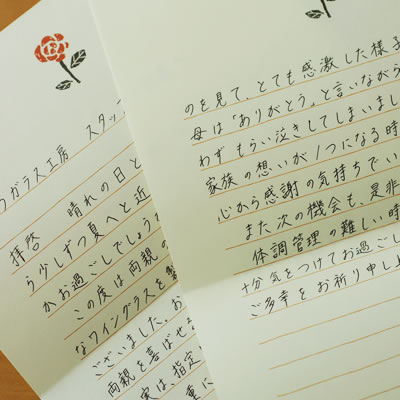 ガラス工房 スタッフ
拝啓 晴れの日と
ら少しずつ夏へと近
かお過ごしでしょう
この度は両親の
なワイングラスを製
ございました。お
両親を喜ばせ
実は、指定
重に
のを見て、とても感激した様子
母は「ありがとう」と言いながら
わずもらい泣きしてしまいまし
家族の想いが1つになる時
心から感謝の気持ちでい
また次の機会も、是非
体調管理の難しい時
十分気をつけてお過ごし
ご多幸をお祈り申し上